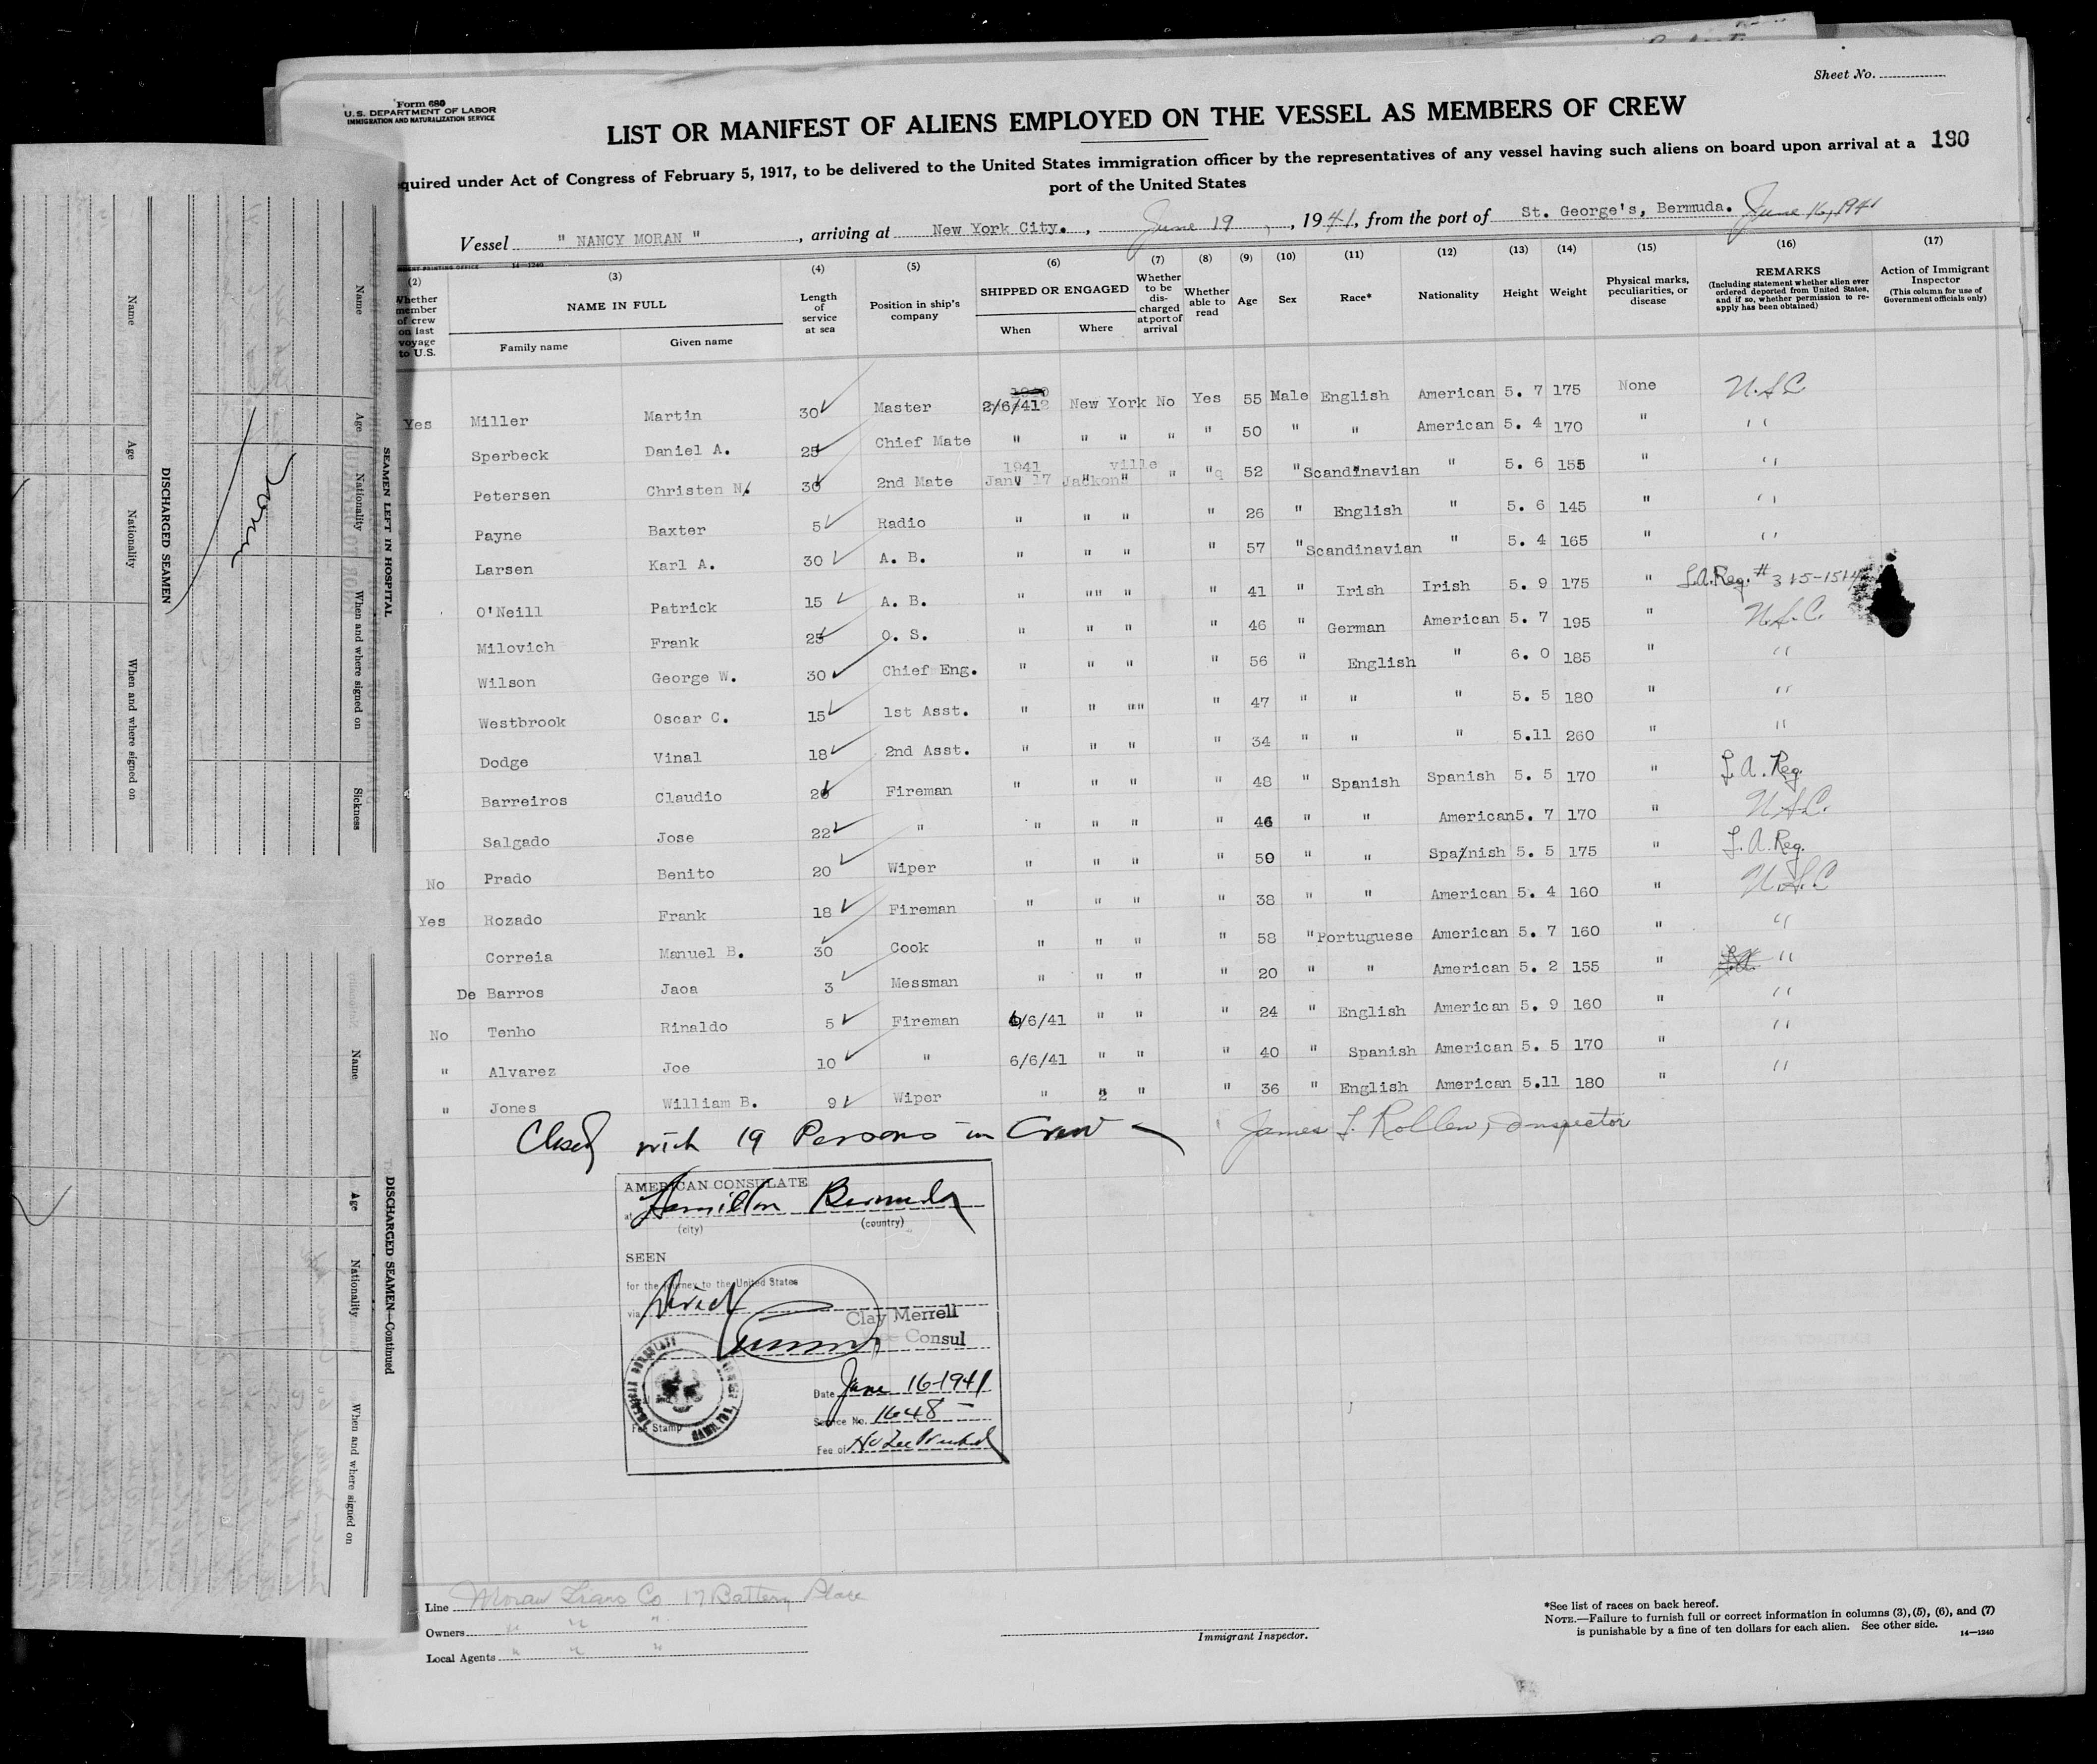 Sheet No.
Form 680
U.S. DEPARTMENT OF LABOR
IMMIGRATION AND NATURALIZATION SERVICE
LIST OR MANIFEST OF ALIENS EMPLOYED ON THE VESSEL AS MEMBERS OF CREW
quired under Act of Congress of February 5, 1917, to be delivered to the United States immigration officer by the representatives of any vessel having such aliens on board upon arrival at a 190
port of the United States
Vessel " NANCY MORAN " , arriving at New York City. , June 19 , 1941, from the port of St. George's, Bermuda. June 16, 1941
14—1240
(2) (3) (4) (5) (6) (7) (8) (9) (10) (11) (12) (13) (14) (15) (16) (17)
Whether member of crew on last voyage to U.S.
NAME IN FULL
Family name
Given name
Length of service at sea
Position in ship's company
SHIPPED OR ENGAGED
When
Where
Whether to be discharged at port of arrival
Whether able to read
Age
Sex
Race*
Nationality
Height
Weight
Physical marks, peculiarities, or disease
REMARKS
(Including statement whether alien ever ordered deported from United States, and if so, whether permission to reapply has been obtained)
Action of Immigrant Inspector
(This column for use of Government officials only)
Yes Miller Martin 30 Master 2/6/41 New York No Yes 55 Male English American 5. 7 175 None U.S.C
Sperbeck Daniel A. 25 Chief Mate " " " " " 50 " " American 5. 4 170 " "
Petersen Christen N. 30 2nd Mate 1941 Jan 17 Jackonville " " 52 " Scandinavian " 5. 6 155 " "
Payne Baxter 5 Radio " " " " 26 " English " 5. 6 145 " "
Larsen Karl A. 30 A. B. " " " " 57 " Scandinavian " 5. 4 165 " "
O'Neill Patrick 15 A. B. " "" " " 41 " Irish Irish 5. 9 175 " L.A.Reg. # 315-1514
Milovich Frank 25 O. S. " " " " 46 " German American 5. 7 195 " U.S.C.
Wilson George W. 30 Chief Eng. " " " " 56 " English " 6. 0 185 " "
Westbrook Oscar C. 15 1st Asst. " " "" " 47 " " " 5. 5 180 " "
Dodge Vinal 18 2nd Asst. " " " " 34 " " " 5.11 260 " "
Barreiros Claudio 20 Fireman " " " " 48 " Spanish Spanish 5. 5 170 " L.A. Reg.
Salgado Jose 22 " " " " " 46 " " American 5. 7 170 " U.S.C.
No Prado Benito 20 Wiper " " " " 50 " " Spanish 5. 5 175 " L.A. Reg.
Yes Rozado Frank 18 Fireman " " " " 38 " " American 5. 4 160 " U.S.C
Correia Manuel B. 30 Cook " " " " 58 " Portuguese American 5. 7 160 " "
De Barros Jaoa 3 Messman " " " " 20 " " American 5. 2 155 " "
No Tenho Rinaldo 5 Fireman 6/6/41 " " " 24 " English American 5. 9 160 " "
" Alvarez Joe 10 " 6/6/41 " " " 40 " Spanish American 5. 5 170 " "
" Jones William B. 9 Wiper " " " " 36 " English American 5.11 180 " "
Closed with 19 Persons in Crew
James F. Rollen, Inspector
AMERICAN CONSULATE
at Hamilton Bermuda
(city) (country)
SEEN
for the journey to the United States
via Direct
Clay Merrell
Consul
Date June 16-1941
Service No. 1648
Fee Stamp
Fee of No Fee
Line Moran Trans Co 17 Battery Place
Owners " " "
Local Agents " " "
Immigrant Inspector.
*See list of races on back hereof.
NOTE.—Failure to furnish full or correct information in columns (3), (5), (6), and (7)
is punishable by a fine of ten dollars for each alien. See other side.
14—1240
SEAMEN LEFT IN HOSPITAL
Name Age Nationality When and where signed on Sickness
None
DISCHARGED SEAMEN
Name Age Nationality When and where signed on
DISCHARGED SEAMEN—Continued
Name Age Nationality When and where signed on